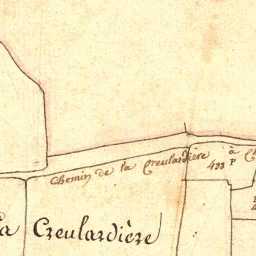 Chemin de la Creulardière à
433 P
la Creulardière